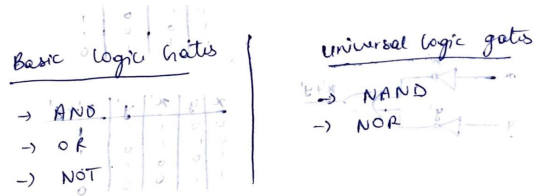 Basic Logic Gates
→ AND.
→ OR
→ NOT
Universal logic gates
→ NAND
→ NOR